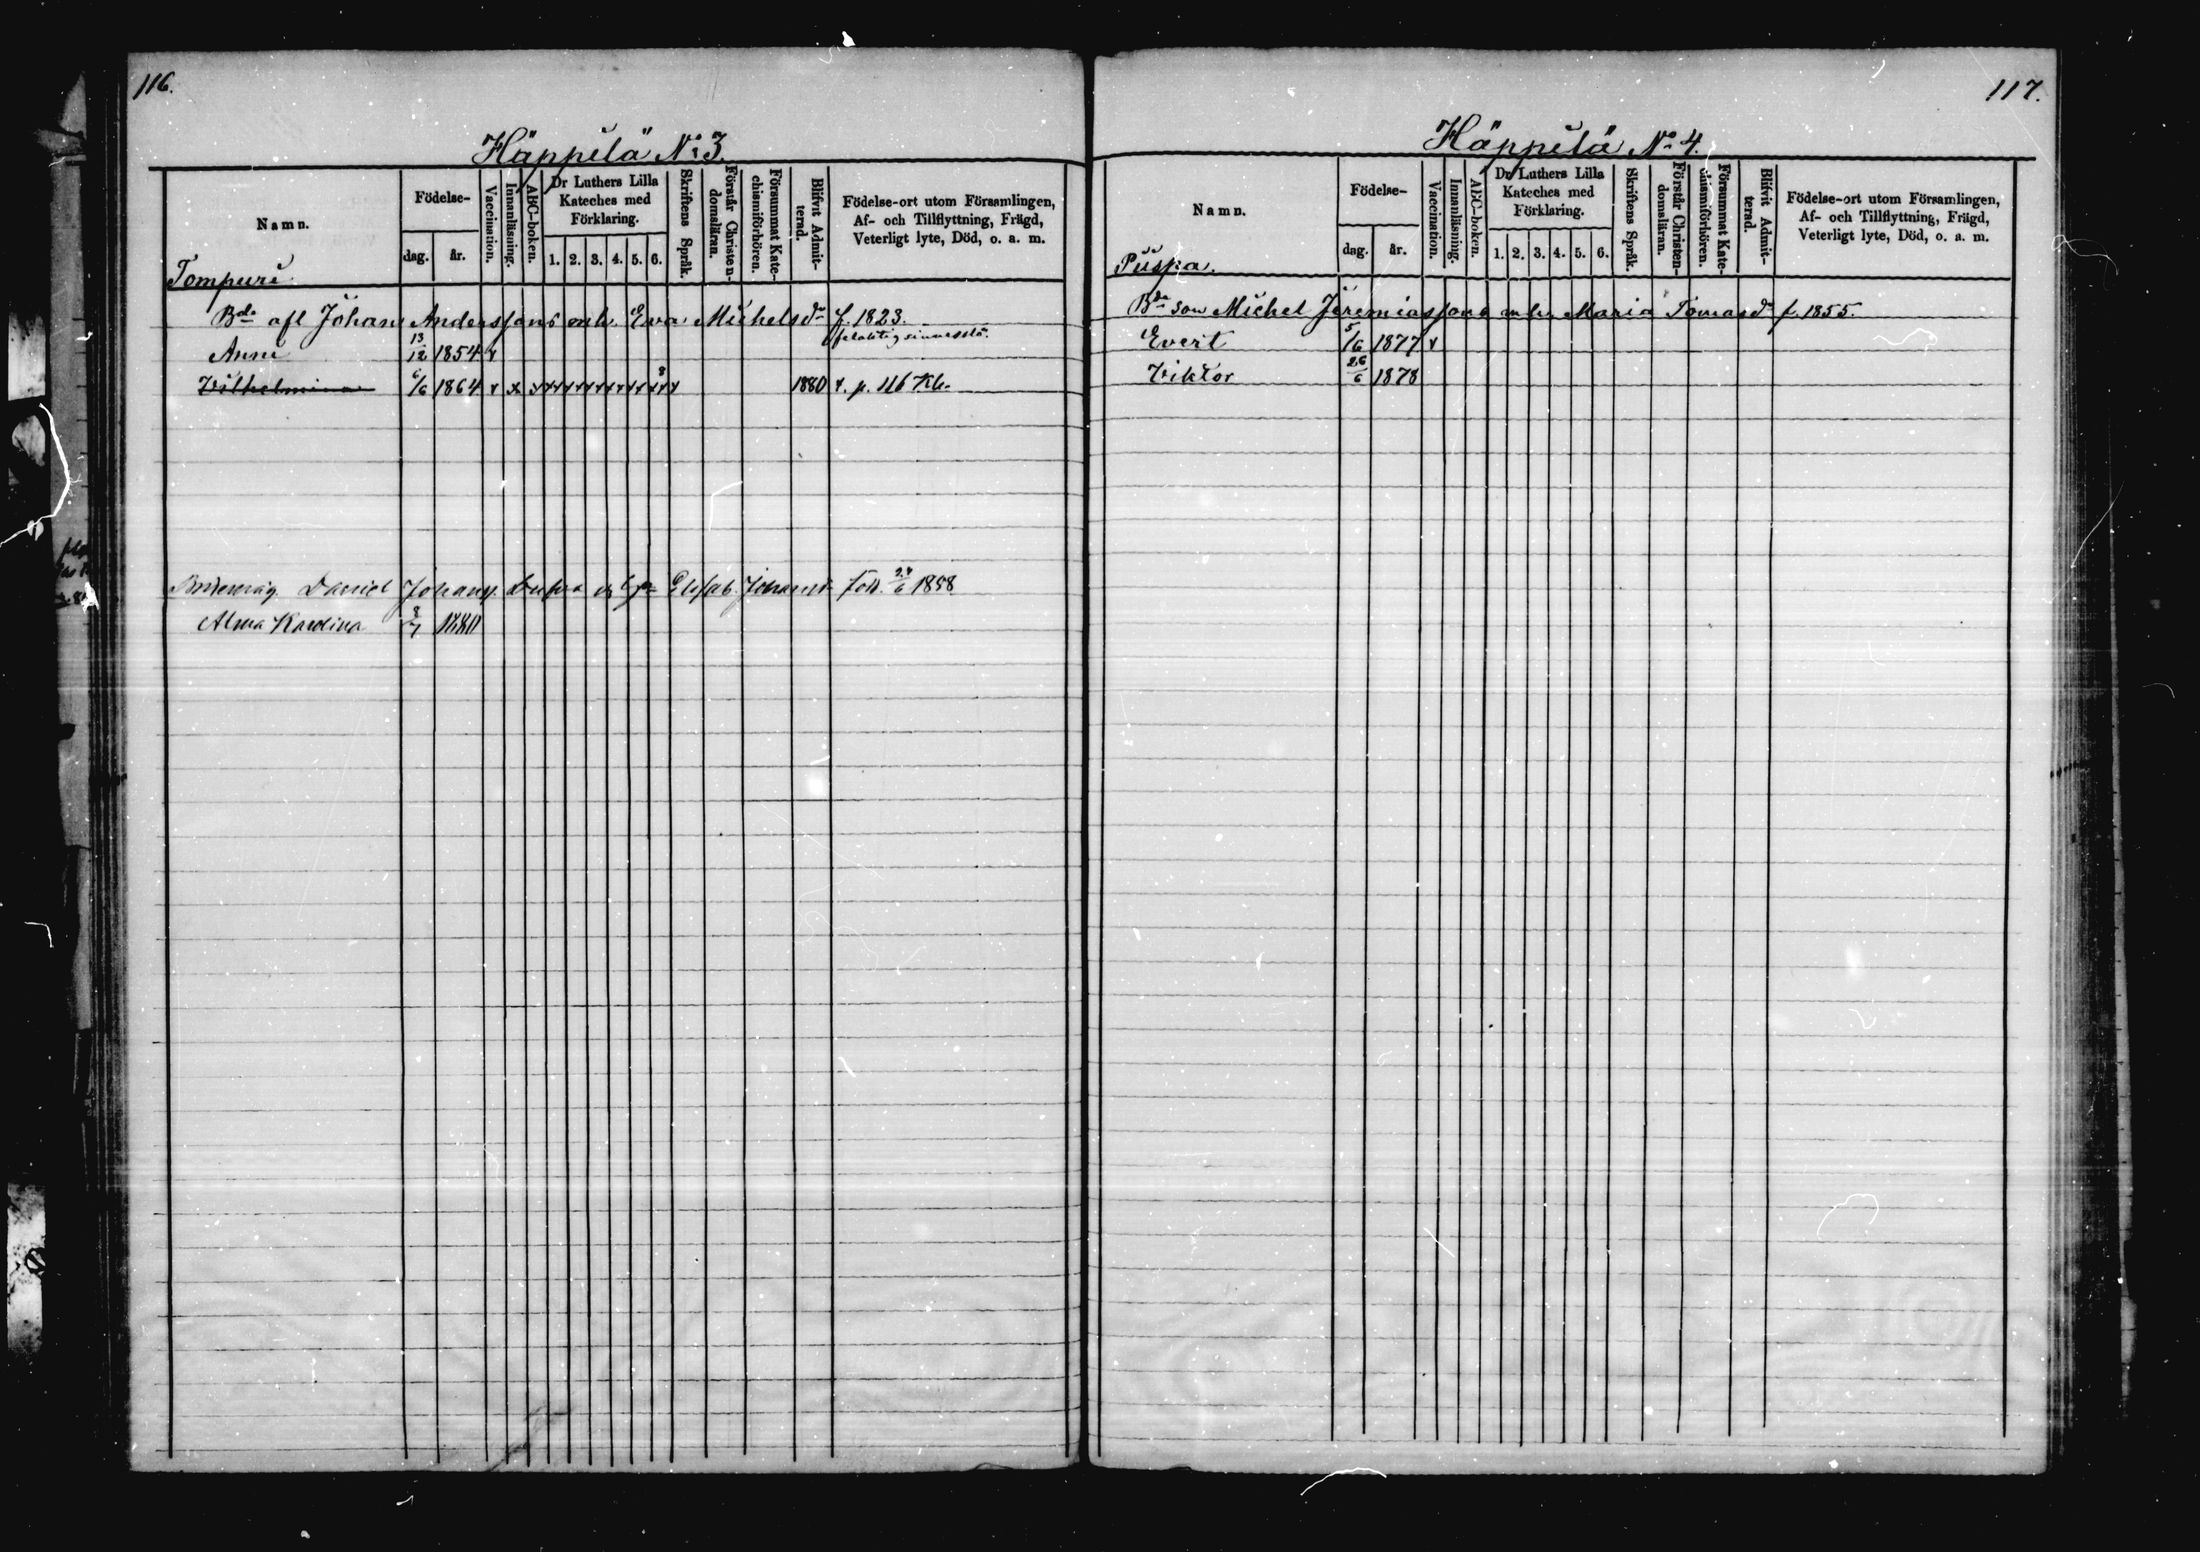 116.
Häppilä № 3.
Namn.
Födelse-
dag.
år.
Vaccination.
Innanläsning.
ABC-boken.
Dr Luthers Lilla
Kateches med
Förklaring.
1. 2. 3. 4. 5. 6.
Skriftens Språk.
Förstår Christen-
domsläran.
Försummat Kate-
chismiförhören.
Blifvit Admit-
terad.
Födelse-ort utom Församlingen,
Af- och Tillflyttning, Frägd,
Veterligt lyte, Död, o. a. m.
Tompuri
Bde afl Johan Anderssons enk. Eva Michelsdr f. 1823.
Anni 13/12 1854 x
Vilhelmina 6/6 1864 x x x x x x x x x x 1880 x. p. 116 Kb.
Daniel Johans. Elisab. Johansd. född 1858
Alma Karolina 8/7 1880
117.
Häppilä № 4.
Namn.
Födelse-
dag.
år.
Vaccination.
Innanläsning.
ABC-boken.
Dr Luthers Lilla
Kateches med
Förklaring.
1. 2. 3. 4. 5. 6.
Skriftens Språk.
Förstår Christen-
domsläran.
Försummat Kate-
chismiförhören.
Blifvit Admit-
terad.
Födelse-ort utom Församlingen,
Af- och Tillflyttning, Frägd,
Veterligt lyte, Död, o. a. m.
Puspa.
Bde son Michel Jeremiassons o. h. Maria Tomasdr f. 1855.
Evert 5/6 1877 x
Viktor 26/6 1878